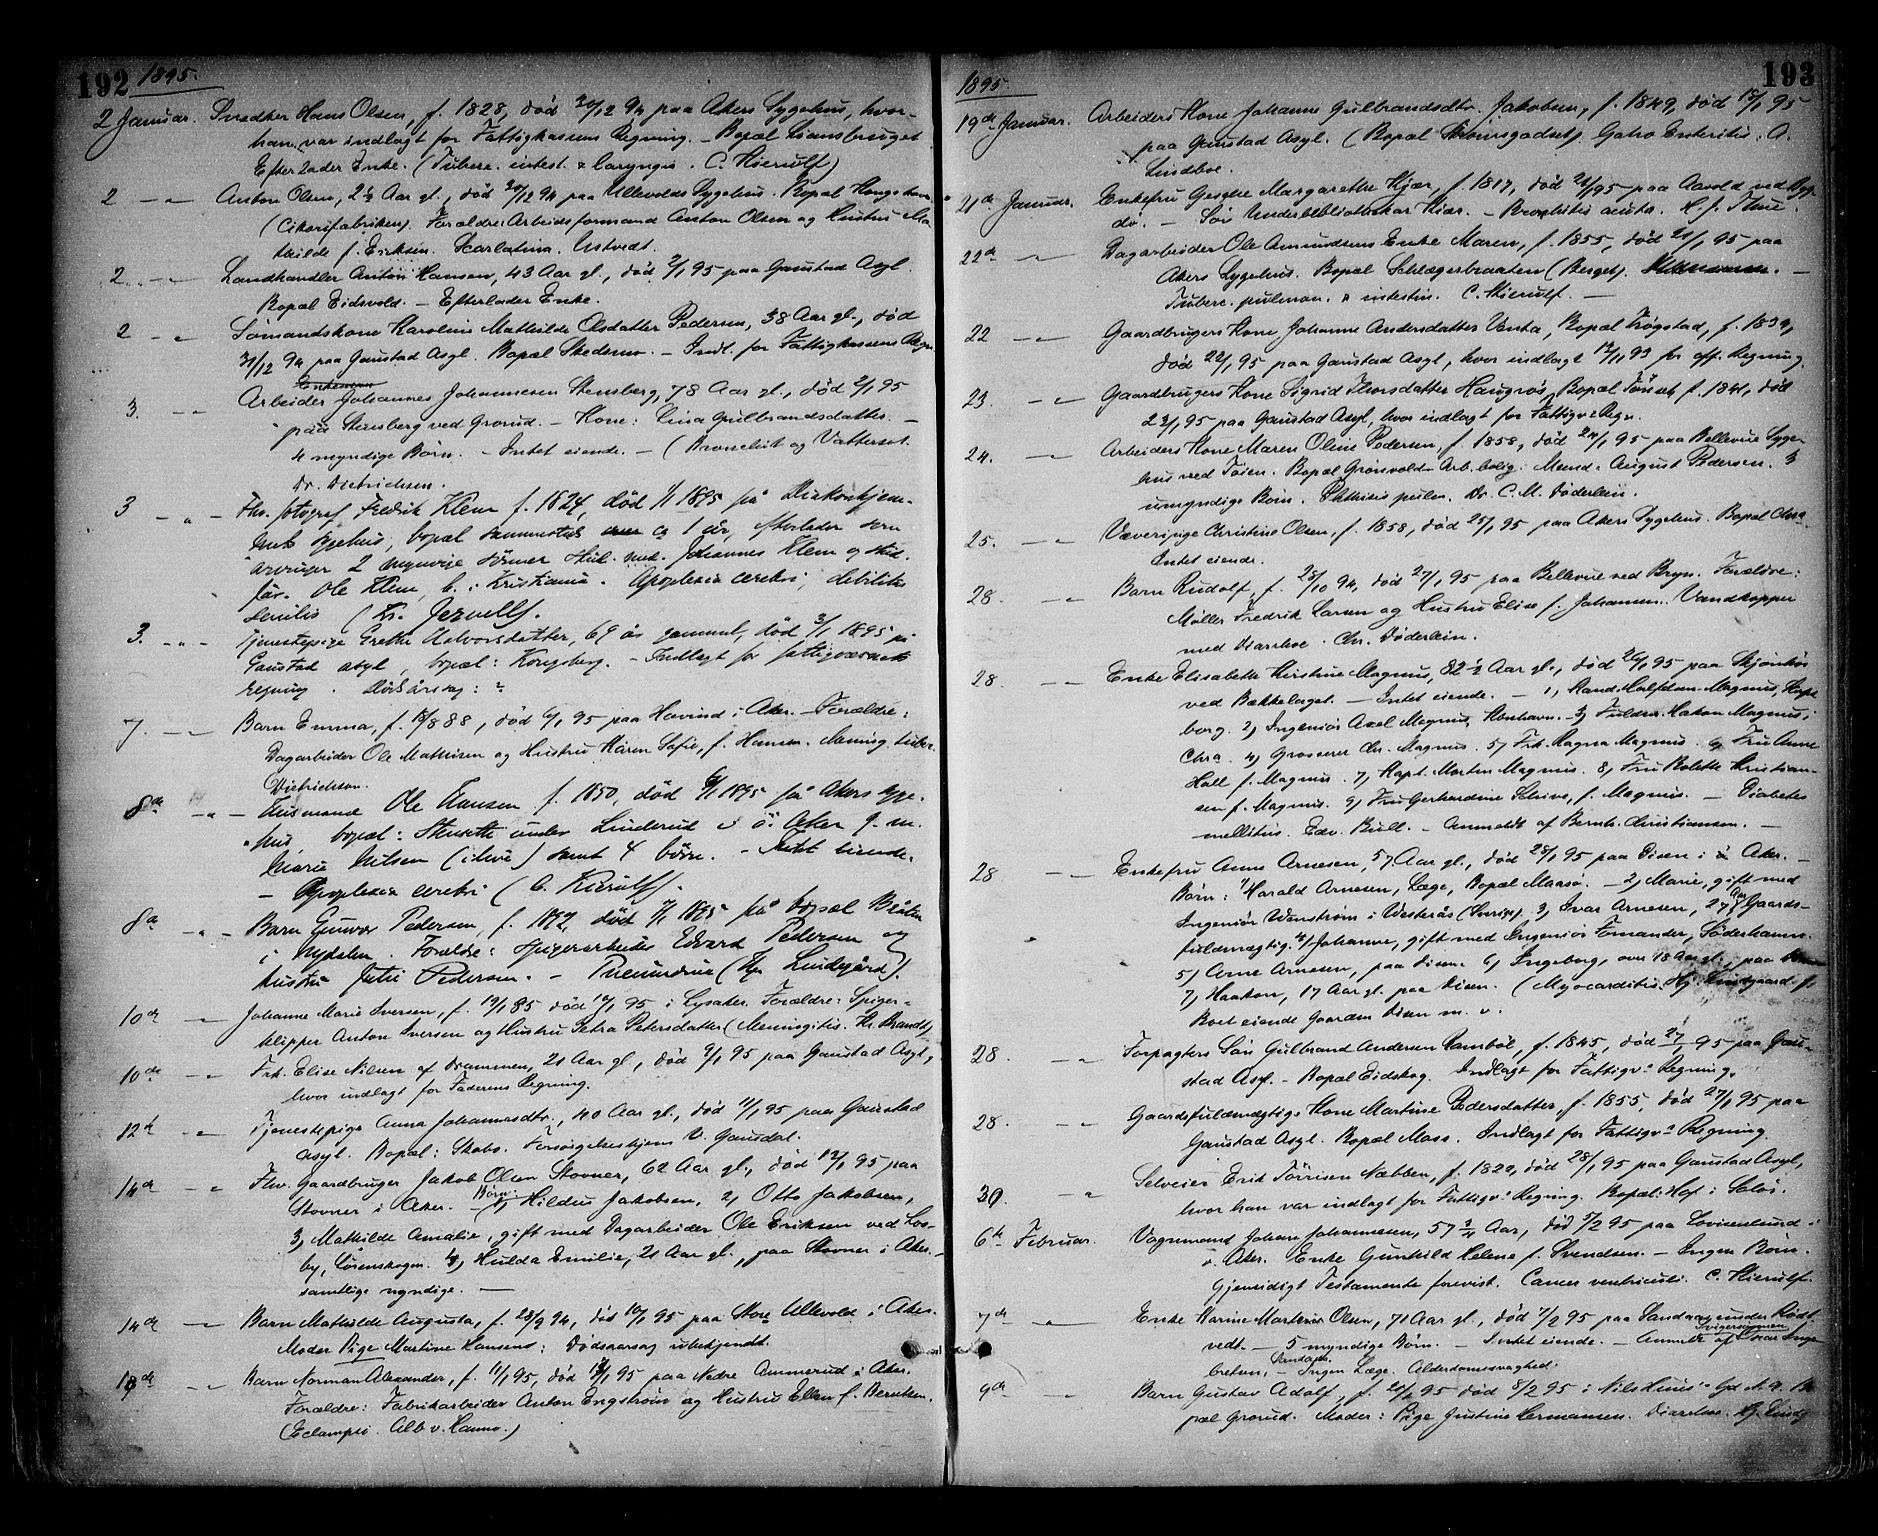 192 1895.
2 Januar. Snedker Hans Olsen, f. 1828, død 30/12 94 paa Akers Sygehus, hvor-
han var indlagt for Fattigkassens Regning. - Bopæl Liansbruget
Efterlader Enke. (Tuberc. intest. & laryngis. C. Kierulf)
2 - " - Anton Olsen, 2½ Aar gl., død 30/12 94 paa Ullevolds Sygehus. Bopæl
(Cikorifabriken) Forældre: Arbeidsformand Anton Olsen og Hustru Ma-
thilde f. Eriksen. Scarlatina. Ustvedt.
2 - " - Landhandler Anton Hansen, 43 Aar gl., død 2/1 95 paa Gaustad Asyl.
Bopæl Eidsvold. - Efterlader Enke.
2 - " - Sømandskone Karoline Mathilde Olsdatter Pedersen, 38 Aar gl., død
31/12 94 paa Gaustad Asyl. Bopæl Skedsmo. - Indl. for Fattigkassens Regn.
Enkemand
3. - " - Arbeider Johannes Johannesen Stensberg, 78 Aar gl., død 2/1 95
paa Stensberg ved Grorud. - Kone: Lina Gulbrandsdatter. -
4 myndige Børn. - Intet eiende. - (Bronchit og Vattersot.
Dr. Dietrichsen.
3 - " - Fhv. fotograf Fredrik Klem f. 1824, død 1/1 1895 på Diakonhjem-
mets sygehus, bopæl sammesteds ca 1 år, efterlader som
arvinger 2 myndige sønner Stud. med. Johannes Klem og stud.
Ole Klem, b. i Kristiania. Apoplexia cerebri, debilitas
senilis (Kr. Jervell).
3. - " - Tjenestepige Grethe Halvorsdatter, 69 år gammel, død 3/1 1895 på
Gaustad asyl, bopæl: Kongsberg. - Indlagt for fattigvæsenets
regning. Dødsårsag: ?
7. - " - Barn Emma, f. 18/8 88, død 6/1 95 paa Hovind i Aker. - Forældre:
Dagarbeider Ole Mathisen og Hustru Karen Sofie, f. Hansen. Mening. tuber.
Dietrichson.
8de - " - Husmand Ole Hansen f. 1850, død 6/1 1895 på Akers syge-
hus bopæl: under Linderud i ö. Aker g. m.
Marie Nilsen (ilive) samt 4 børn. - Intet eiende.
- Apoplexia cerebri (C. Kierulf).
8de - " - Barn Gunvor Pedersen, f. 1892, død 7/1 1895 på bopæl Bråten
i Nydalen. Forældre: Spigerarbeider Edvard Pedersen og
hustru Julie Pedersen. - Pneumonie (Hj. Lindegård).
10de - " - Johanne Marie Iversen, f. 19/1 85 død 10/1 95 i Lysaker. Forældre: Spiger-
klipper Anton Iversen og Hustru Petra Petersdatter (Meningitis. Kr. Brandt)
10de - " - Frk. Elise Nilsen af Drammen, 21 Aar gl., død 9/1 95 paa Gaustad Asyl,
hvor indlagt for Faderens Regning.
12te - " - Tjenestepige Anna Johannesdtr., 40 Aar gl., død 11/1 95 paa Gaustad
Asyl. Bopæl: Skabo. Forsørgelseshjem V. Gausdal.
14de - " - Fhv. Gaardbruger Jakob Olsen Stovner, 62 Aar gl., død 12/1 95 paa
Stovner i Aker. - Børn: 1) Hildus Jakobsen, 2) Otto Jakobsen,
3) Mathilde Amalie, gift med Dagarbeider Ole Eriksen ved Los-
by, Lørenskogen. 4) Hulda Emilie, 21 Aar gl., paa Stovner i Aker. -
samtlige myndige. -
14de - " - Barn Mathilde Augusta, f. 28/9 94, død 10/1 95 paa Store Ullevold i Aker.
Moder Pige Martine Hansens: Dødsaarsag ubekjendt.
18de - " - Barn Norman Alexander, f. 11/1 95, død 13/1 95 paa Nedre Ammerud i Aker.
Forældre: Fabrikarbeider Anton Engstrøm og Hustru Ellen f. Berntsen.
(Eclampsi. Alb v. Hanno.)
1895. 193
19de Januar. Arbeiders Kone Johanne Gulbrandsdtr. Jakobsen, f. 1849, død 18/1 95
paa Gaustad Asyl. (Bopæl Gastro Enteritis. A.
Lindboe.
21de Januar. Enkefru Gesche Margarethe Kjær, f. 1817, død 21/1 95 paa Aavold ved Byg-
dø. - Søn Underbibliothekar Kiær. - Bronchitis acuta. H. J. Thue.
22de - " - Dagarbeider Ole Amundsens Enke Maren, f. 1855, død 21/1 95 paa
Akers Sygehus. Bopæl Schlægerbraaten (Berget). -
Tuberc. pulmon. & intestin. C. Kierulf. -
22 - " - Gaardbrugers Kone Johanne Andersdatter Vanta, Bopæl Trøgstad, f. 1832,
død 22/1 95 paa Gaustad Asyl, hvor indlagt 12/1 93 for off. Regning.
23. - " - Gaardbrugers Kone Sigrid Thorsdatter Haugrøs, Bopæl f. 1841, død
23/1 95 paa Gaustad Asyl, hvor indlagt for Fattigv. Regn.
24. - " - Arbeiders Kone Maren Oline Pedersen, f. 1858, død 24/1 95 paa Bellevue Syge-
hus ved Tøien. Bopæl Grønvolds Arb. bolig. Mand: August Pedersen. 3
umyndige Børn. Phthisis pulm. Dr. C. M. Døderlein.
25. - " - Væverpige Christine Olsen, f. 1858, død 25/1 95 paa Akers Sygehus. Bopæl Chra.
Intet eiende.
28. - " - Barn Rudolf, f. 28/10 94, død 27/1 95 paa Bellevue ved Bryn. Forældre:
Møller Fredrik Larsen og Hustru Elise f. Johansen. Vandkopper
med Diarrhoe. Chr. Døderlein.
28. - " - Enke Elisabeth Kirstine Magnus, 82½ Aar gl., død 26/1 95 paa
ved Bækkelaget. - Intet eiende. - 1) Kand. Halfdan Magnus,
borg. 2) Ingeniør Axel Magnus, Kbnhavn. - 3) Fuldm. Hakon Magnus,
Chra. 4) Grosserer Chr. Magnus. 5) Frk. Ragna Magnus. 6) Fru Anne
Holl f. Magnus. 7) Kapt. Morten Magnus. 8) Fru Bolette Kristian-
sen f. Magnus. 9) Fru Gerhardine Schive, f. Magnus. - Diabetes
mellitus. Edv. Bull. - Anmeldt af Bernh. Christiansen. -
28 - " - Enkefru Anna Arnesen, 57 Aar gl., død 28/1 95 paa Disen i Aker. -
Børn: 1) Harald Arnesen, Læge, Bopæl Maasø. - 2) Marie, gift med
Ingeniør Wenström i Westerås (Sverige), 3) Ivar Arnesen, 27 Aar, Gaards-
fuldmægtig. 4) Johanne, gift med Ingeniør Fornander, Söderhamn.
5) Arne Arnesen, paa Disen. 6) Ingeborg, over 18 Aar gl., paa Disen
7) Haakon, 17 Aar gl. paa Disen. (Myocarditis. Hj. Lindgaard.)
Boet eiende Gaarden Disen m. v.
28. - " - Forpagters Søn Gulbrand Andersen Rambøl, f. 1845, død 27/1 95 paa Gau-
stad Asyl. - Bopæl Eidskog. Indlagt for Fattigv.s Regning.
28. - " - Gaardsfuldmægtigs Kone Martine Pedersdatter, f. 1855, død 27/1 95 paa
Gaustad Asyl. Bopæl Moss. Indlagt for Fattigv.s Regning.
30. " Selveier Erik Törrisen Næbben, f. 1820, død 28/1 95 paa Gaustad Asyl,
hvor han var indlagt for Fattigv.s Regning. Bopæl: Hof i Solør.
6te Februar. Vognmand Johan Johannesen, 57¾ Aar, død 5/2 95 paa Lovisenlund i
v. Aker. Enke Gunhild Helene f. Svendsen. - Ingen Børn.
Gjensidigt Testamente forevist. Cancer ventriculi. C. Kierulf.
7de - " - Enke Karine Olsen, 71 Aar gl., død 7/2 95 paa Sandaas under Rødt-
vedt. - 5 myndige Børn. - Intet eiende. - Anmeldt af Svigersønnen Inge-
bretsen, Sandaas. - Ingen Læge. Alderdomssvaghed.
9de - " - Barn Gustav Adolf, f. 21/1 95 død 8/2 95 i Nils Huus' Gd N. 9. Bo-
pæl Grorud. Moder: Pige Justine Hermansen. Diarrhoe. Hj. Lindg